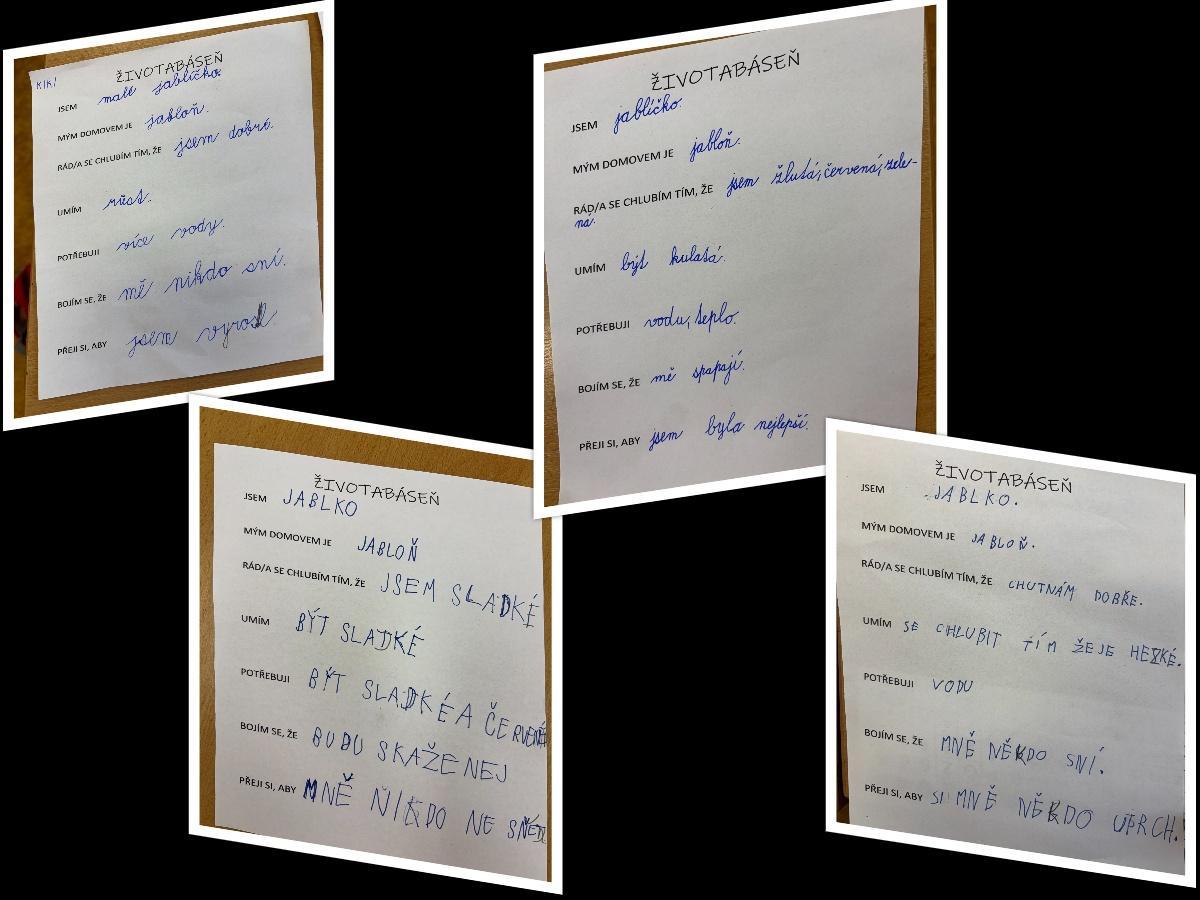 KIKI
ŽIVOTABÁSEŇ
JSEM malé jablíčko.
MÝM DOMOVEM JE jabloň.
RÁD/A SE CHLUBÍM TÍM, ŽE jsem dobré.
UMÍM růst.
POTŘEBUJI více vody.
BOJÍM SE, ŽE mě nikdo sní.
PŘEJI SI, ABY jsem vyrosl
ŽIVOTABÁSEŇ
JSEM jablíčko.
MÝM DOMOVEM JE jabloň.
RÁD/A SE CHLUBÍM TÍM, ŽE jsem žlutá, červená, zele-
ná.
UMÍM být kulatá.
POTŘEBUJI vodu, teplo.
BOJÍM SE, ŽE mě spapají.
PŘEJI SI, ABY jsem byla nejlepší.
ŽIVOTABÁSEŇ
JSEM JABLKO
MÝM DOMOVEM JE JABLOŇ
RÁD/A SE CHLUBÍM TÍM, ŽE JSEM SLADKÉ
UMÍM BÝT SLADKÉ
POTŘEBUJI BÝT SLADKÉ A ČERVENÉ
BOJÍM SE, ŽE BUDU SKAŽENEJ
PŘEJI SI, ABY MNĚ NIKDO NE SNĚDL
ŽIVOTABÁSEŇ
JSEM JABLKO.
MÝM DOMOVEM JE JABLOŇ.
RÁD/A SE CHLUBÍM TÍM, ŽE CHUTNÁM DOBŘE.
UMÍM SE CHLUBIT TÍM ŽE JE HEZKÉ.
POTŘEBUJI VODU
BOJÍM SE, ŽE MNĚ NĚKDO SNÍ.
PŘEJI SI, ABY SI MNĚ NĚKDO UTRCH.